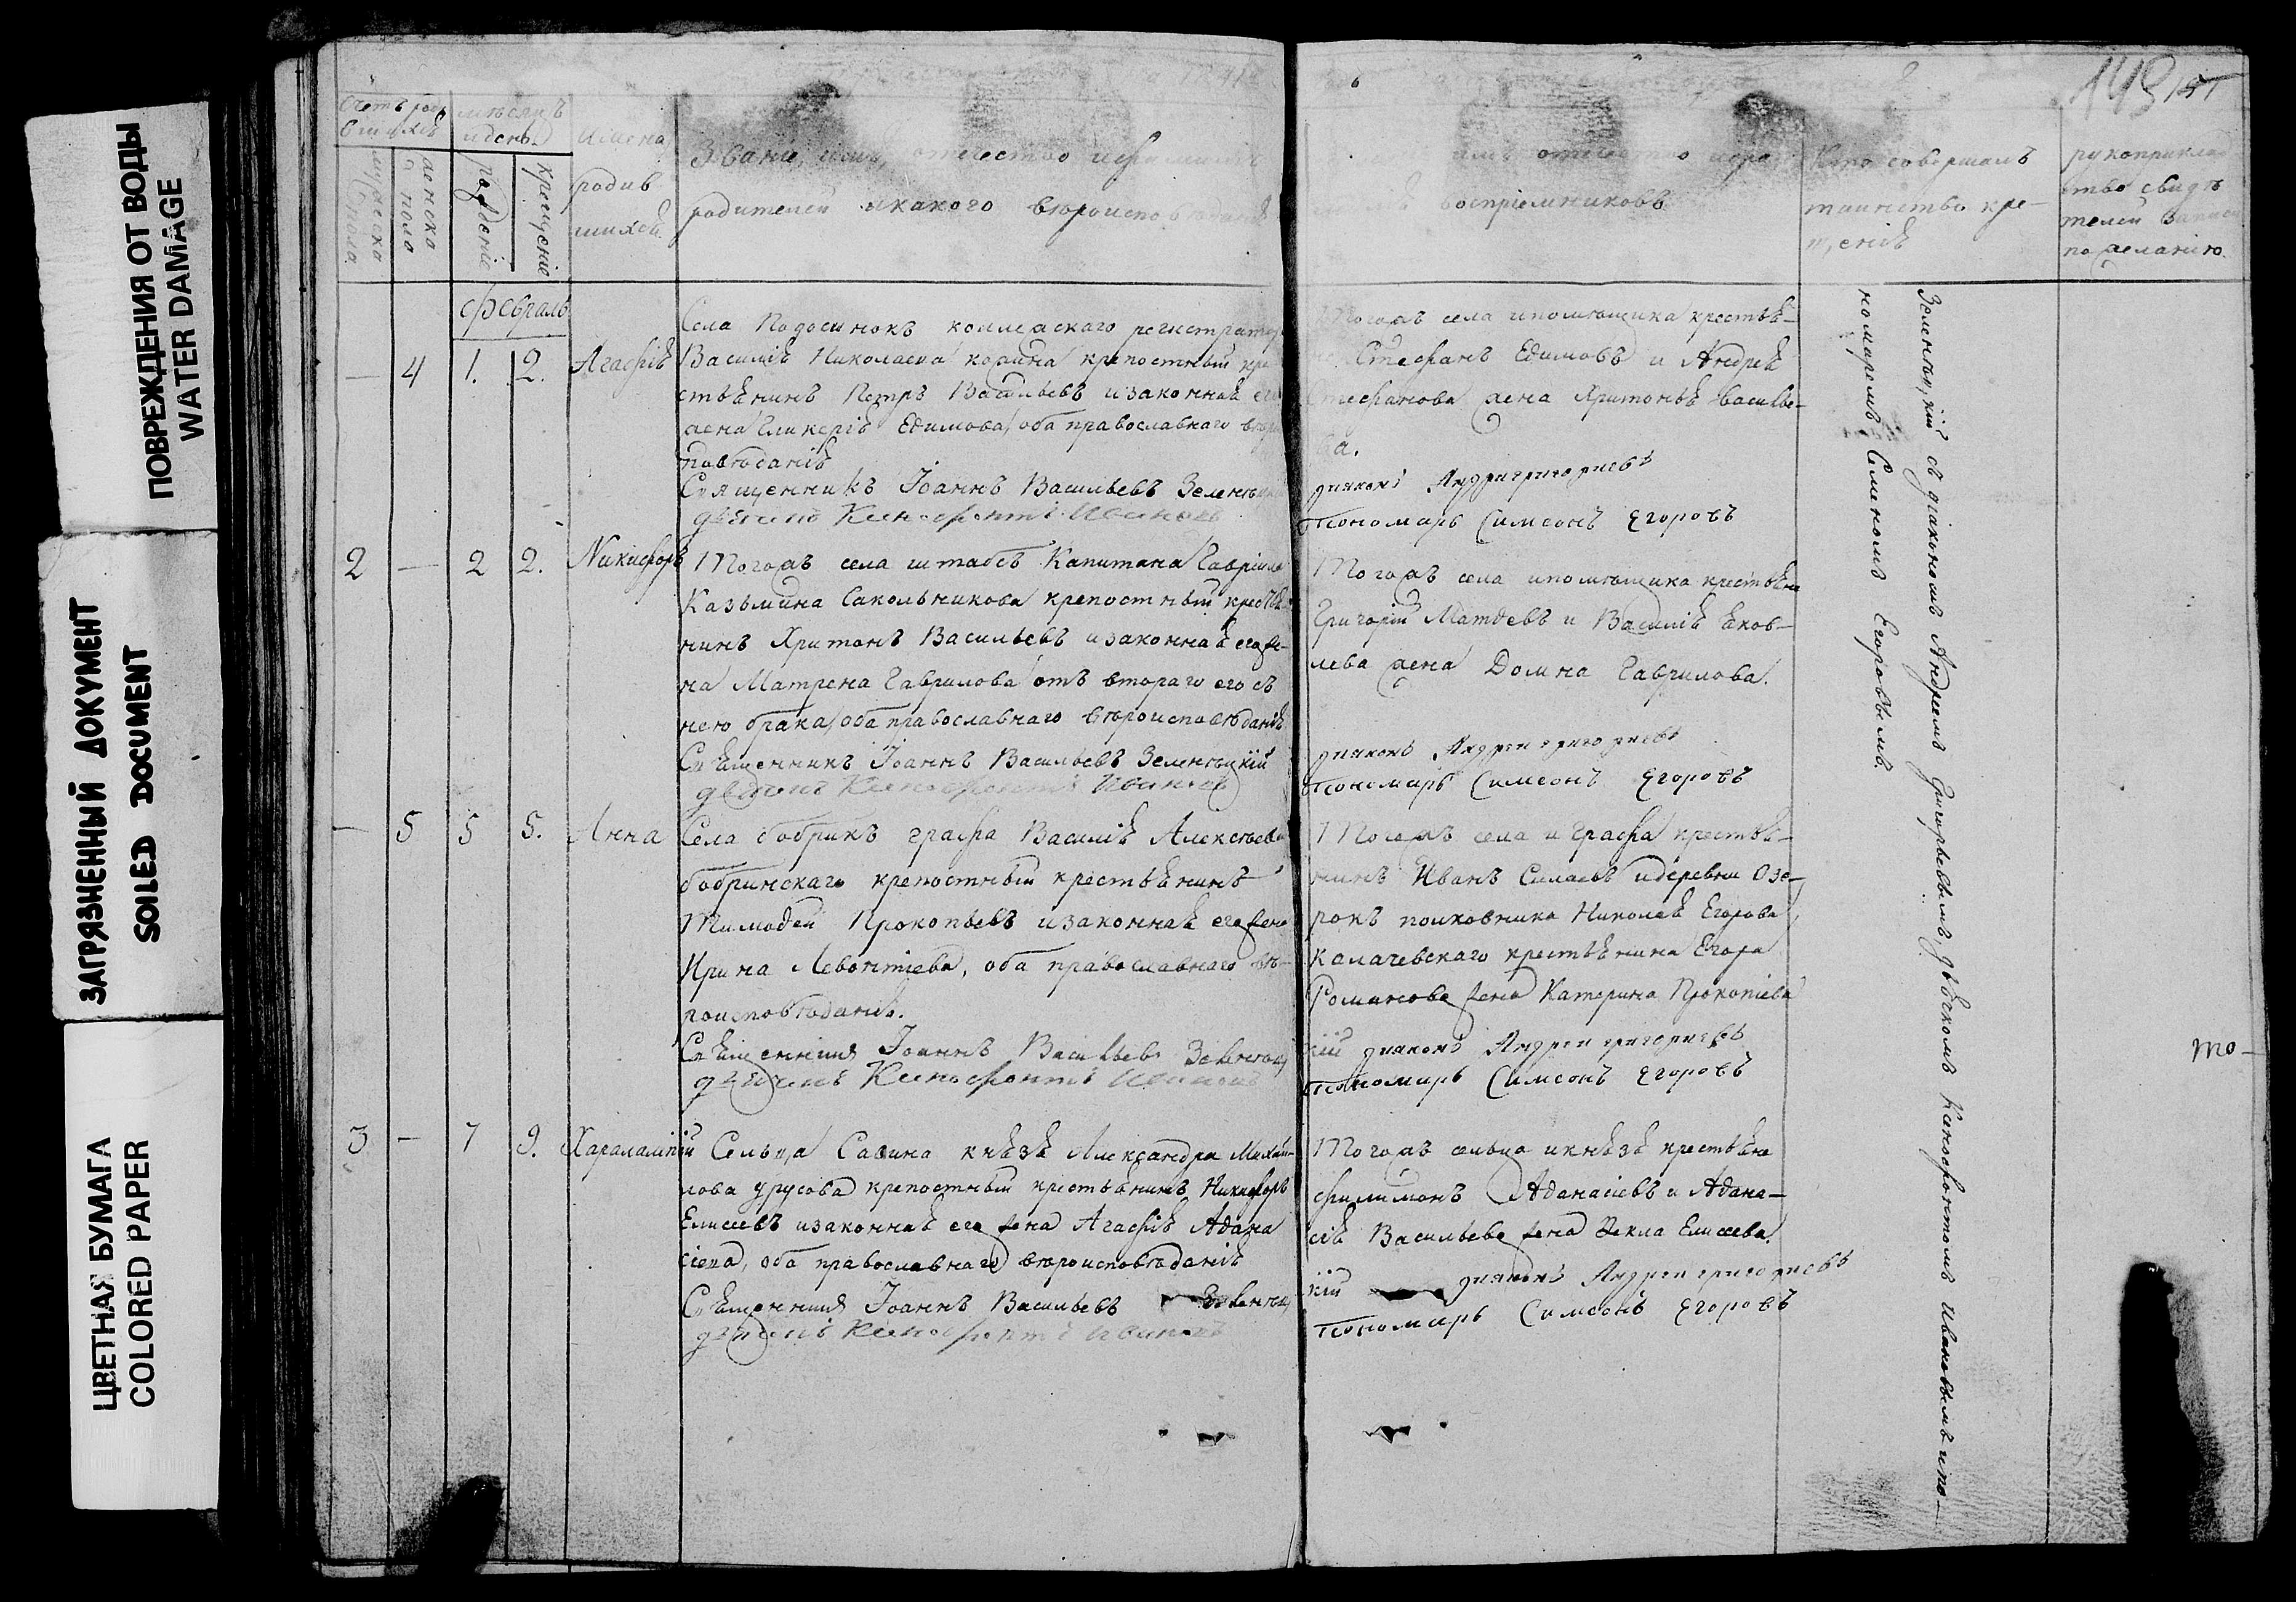 ПОВРЕЖДЕНИЯ ОТ ВОДЫ
WATER DAMAGE
ЗАГРЯЗНЕННЫЙ ДОКУМЕНТ
SOILED DOCUMENT
ЦВЕТНАЯ БУМАГА
COLORED PAPER
149
мѣсяцъ
и день
имена
родив
шихсѧ
мужеска пола
женска пола
рожденіе
крещеніе
Званіе, имѧ, отечество и фамиліѧ
родителей и какого вѣроисповѣданіѧ
имѧ отечество и фа
воспріемниковъ
Кто совершалъ
таинство кре-
щеніѧ
рукоприклад
ство свидѣ
телей записи
по желанію
февраль
— 4 1. 2. Агафіѧ
Села Подосинокъ коллежскаго регистратора
Василіѧ Николаева корина крепостный кре
стьѧнинъ Петръ Васильевъ и законнаѧ его
жена Гликеріѧ Ефимова, оба православнаго вѣрои
повѣданіѧ
Священникъ Іоаннъ Васильевъ Зеленецкій
дьѧчекъ Ксенофонтъ Ивановъ
Тогожъ села и помѣщика крестьѧ-
Стефанъ Ефимовъ и Андреѧ
Стефанова жена Харитонѧ Василье-
ва.
диякон Андрей григориевъ
Пономарь Симеонъ Егоровъ
2 — 2 2. Никифоръ
Тогожъ села штабсъ Капитана Гавріила
Казьмина Сакольникова крепостный крестьѧ
нинъ Харитонъ Васильевъ и законнаѧ его же-
на Матрена Гаврилова отъ втораго его съ
нею брака, оба православнаго вѣроисповѣданіѧ
Свѧщенникъ Іоаннъ Васильевъ Зеленецкій
дьѧчекъ Ксенофонтъ Ивановъ
Тогожъ села и помѣщика крестьѧне
Григорій Матфевъ и Василіѧ Ѧков-
лева жена Домна Гаврилова.
диякон Андрей григориевъ
Пономарь Симеонъ Егоровъ
— 5 5 5. Анна
Села бобрикъ графа Василіѧ Алексѣева
бобринскаго крепостный крестьѧнинъ
Тимофей Прокопьевъ и законнаѧ его жена
Ирина Левонтіева, оба православнаго вѣ-
роисповѣданіѧ.
Свѧщенникъ Іоаннъ Васильевъ Зеленец
дьѧчекъ Ксенофонтъ Ивановъ
Тогожъ села и графа крестьѧ-
нинъ Иванъ Силаевъ и деревни Озе-
рокъ полковника Николаѧ Егорова
калачевскаго крестьѧнина Егора
Романова жена Катерина Прокопіева
кій диякон Андрей григориевъ
Пономарь Симеонъ Егоровъ
3 — 7 9. Харалампій
Сельца Савина кнѧзѧ Александра Михай-
лова урусова крепостный крестьѧнинъ Никифоръ
Елисеевъ и законнаѧ его жена Агафіѧ Афана
сіева, оба православнаго вѣроисповѣданіѧ
Свѧщенникъ Іоаннъ Васильевъ Зеленец
дьѧчекъ Ксенофонтъ Ивановъ
Тогожъ сельца и кнѧзѧ крестьѧне
Филимонъ Афанасіевъ и Афана-
сіѧ Васильева жена Фекла Елисеева.
кій диякон Андрей григориевъ
Пономарь Симеонъ Егоровъ
Зеленецкій съ діакономъ Андреемъ Григорьевымъ, дьѧчкомъ Ксенофонтомъ Ивановымъ и по-
номаремъ Семеномъ Егоровымъ.
то-